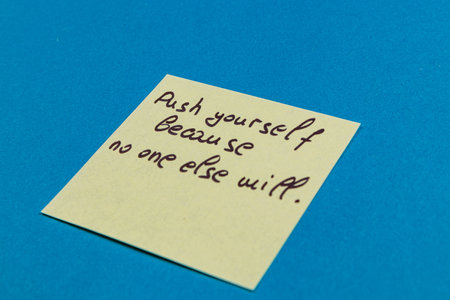 Push yourself
because
no one else will.